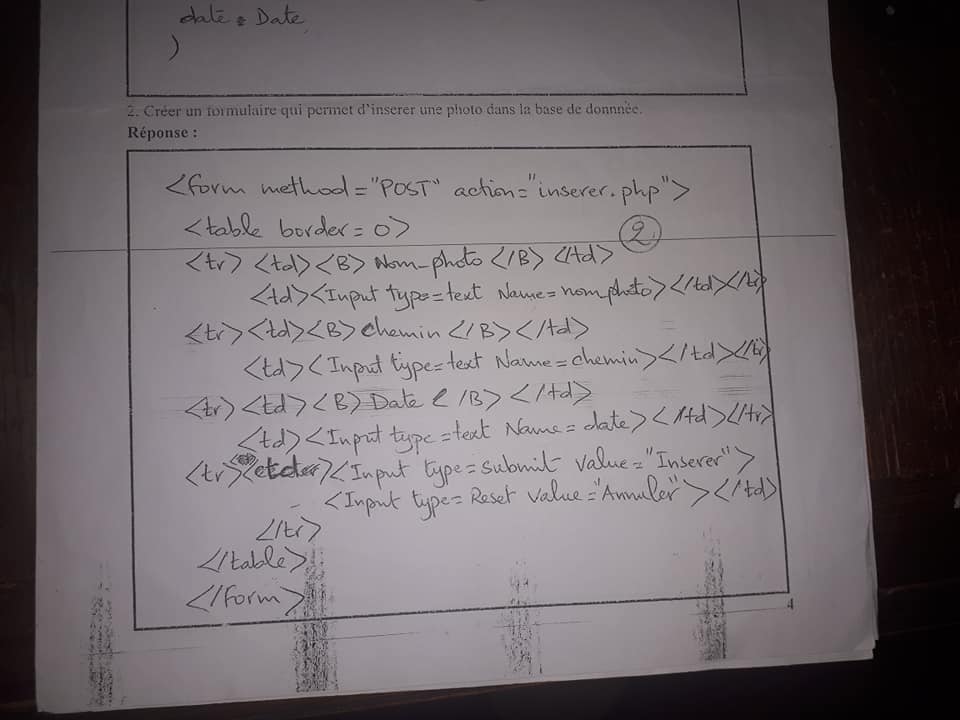 date : Date,
)
2. Créer un formulaire qui permet d'inserer une photo dans la base de donnnée.
Réponse :
<form method="POST" action="inserer.php">
<table border=0>
2
<tr> <td><B> Nom_photo </B> </td>
<td><Input type=text Name=nom_photo></td></tr>
<tr><td><B> chemin </B></td>
<td><Input type=text Name=chemin></td></tr>
<tr><td><B> Date </B> </td>
<td><Input type=text Name=date></td></tr>
<tr> <Input type=submit value="Inserer">
<Input type=Reset value="Annuler"></td>
</tr>
</table>
</form>
4